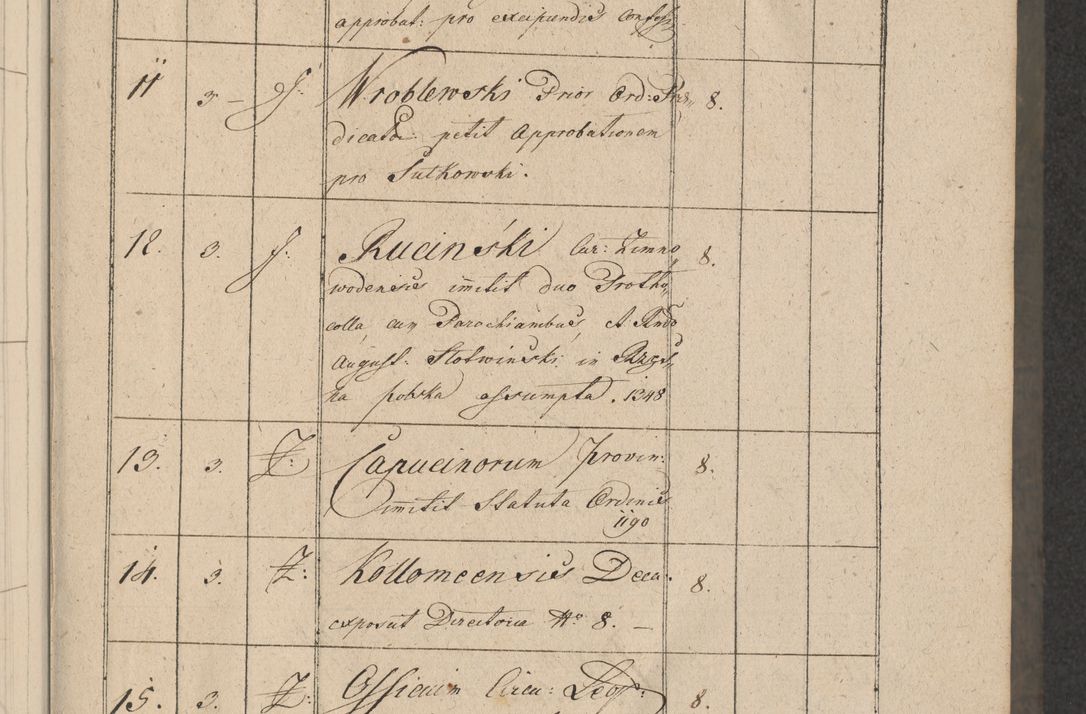 approbat: pro excipiendis Confess:
11 3 – J: Wroblewski Prior Ord: Præ= 8.
dicator: petit Approbationem
pro Sutkowski.
12. 3. J: Rucinski Cur: Zimno 8.
wodensis im̄itit duo Protho,
colla cum Parochianibus, et Rndo
August: Slotwinski, in Rzęs,
na polska assumpta. 1348
13. 3. Z: Capucinorum Provin: 8.
im̄itit Statuta Ordinis
1190
14. 3. Z: Kollomeensis Deca. 8.
exposcit Directoria No 8. –
15. 3. Z: Officium Circu: Leop: 8.